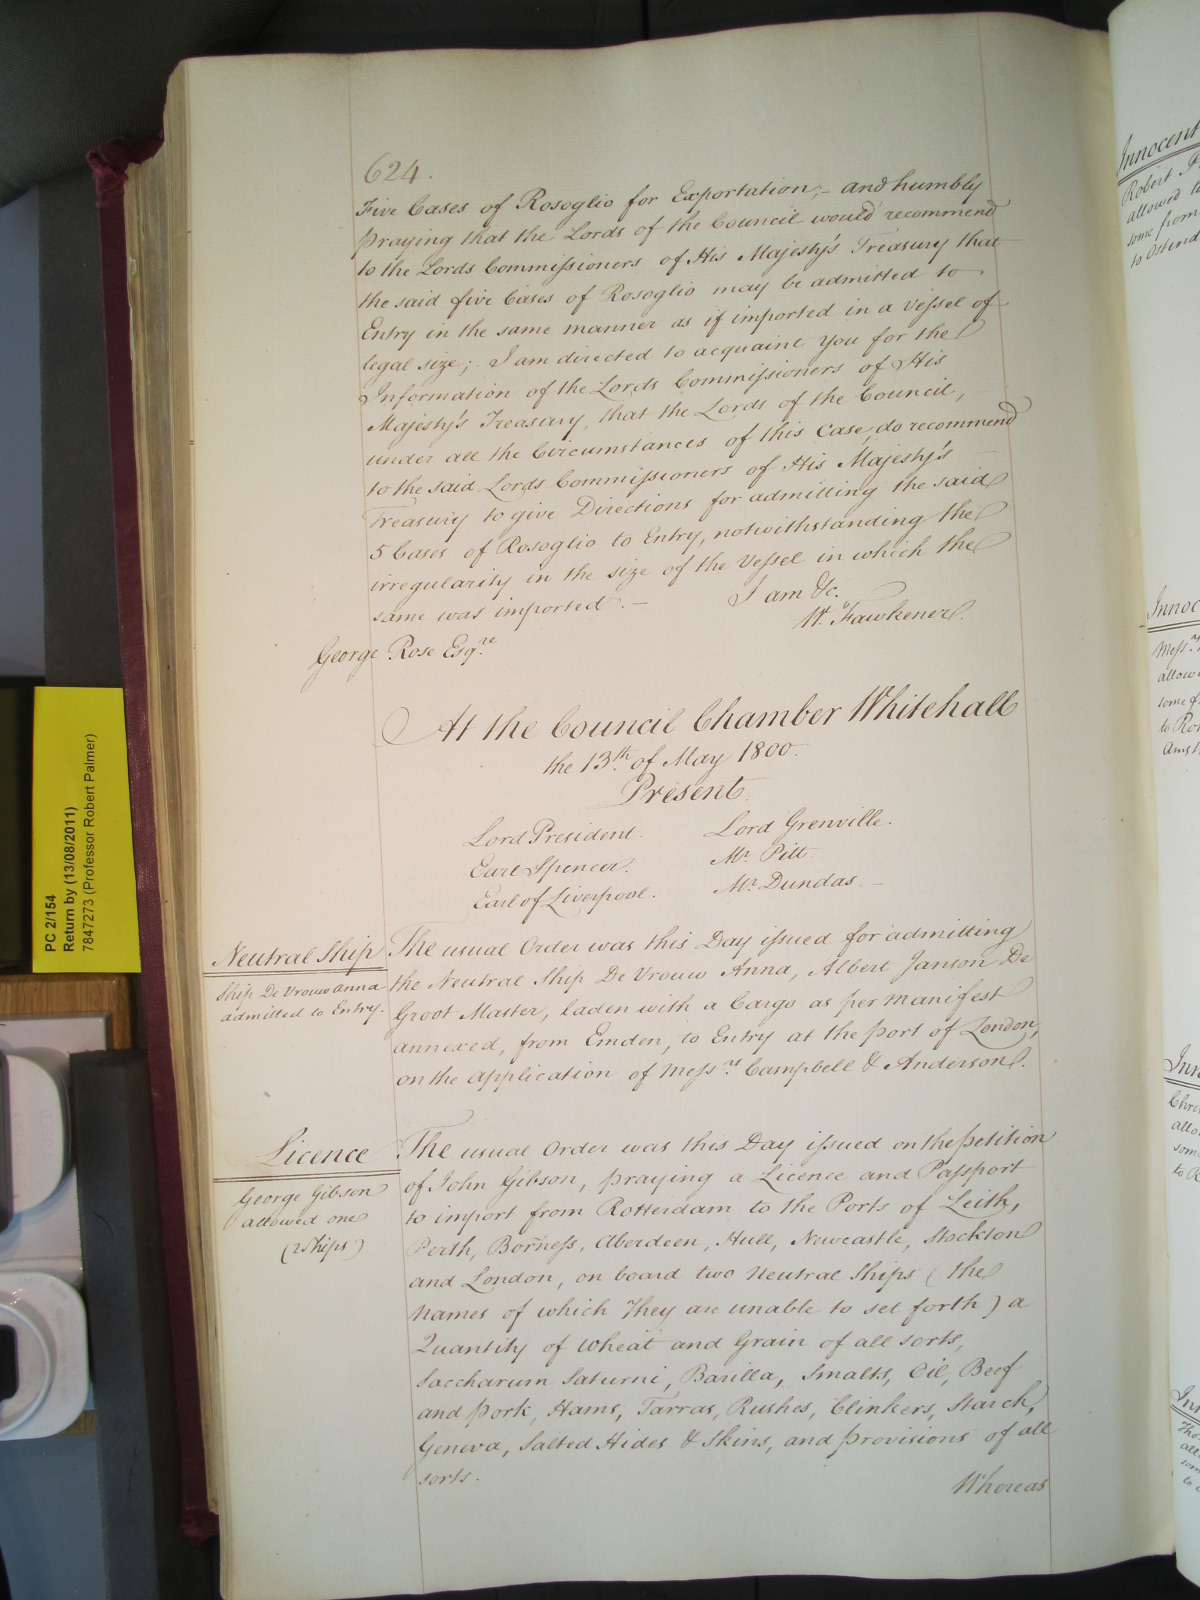 624.
Five Cases of Rosoglio for Exportation; – and humbly
praying that the Lords of the Council would recommend
to the Lords Commissioners of His Majesty's Treasury that
the said five Cases of Rosoglio may be admitted to
Entry in the same manner as if imported in a Vessel of
legal size; I am directed to acquaint You for the
Information of the Lords Commissioners of His
Majesty's Treasury, that the Lords of the Council,
under all the Circumstances of this Case, do recommend
to the said Lords Commissioners of His Majesty's
Treasury to give Directions for admitting the said
5 Cases of Rosoglio to Entry, notwithstanding the
irregularity in the size of the Vessel in which the
same was imported. –
I am &c.
W. Fawkener.
George Rose Esqre.
At the Council Chamber Whitehall
the 13th of May 1800.
Present
Lord President. Lord Grenville.
Earl Spencer. Mr. Pitt.
Earl of Liverpool. Mr. Dundas. –
Neutral Ship
Ship De Vrouw Anna
admitted to Entry.
The usual Order was this Day issued for admitting
the Neutral Ship De Vrouw Anna, Albert Janson De
Groot Master, laden with a Cargo as per Manifest
annexed, from Emden, to Entry at the port of London,
on the application of Messrs. Campbell & Anderson.
Licence
George Gibson
allowed one
(2 Ships)
The usual Order was this Day issued on the petition
of John Gibson, praying a Licence and Passport
to import from Rotterdam to the Ports of Leith,
Perth, Borness, Aberdeen, Hull, Newcastle, Stockton
and London, on board two Neutral Ships (the
Names of which They are unable to set forth) a
Quantity of Wheat and Grain of all sorts,
Saccharum Saturni, Barilla, Smalts, Oil, Beef
and Pork, Hams, Tarras, Rushes, Clinkers, Starch,
Geneva, Salted Hides & Skins, and provisions of all
sorts.
Whereas
PC 2/154
Return by (13/08/2011)
7847273 (Professor Robert Palmer)
Innocent
Robert
allowed
some from
to Ostend
Messrs.
allow
to